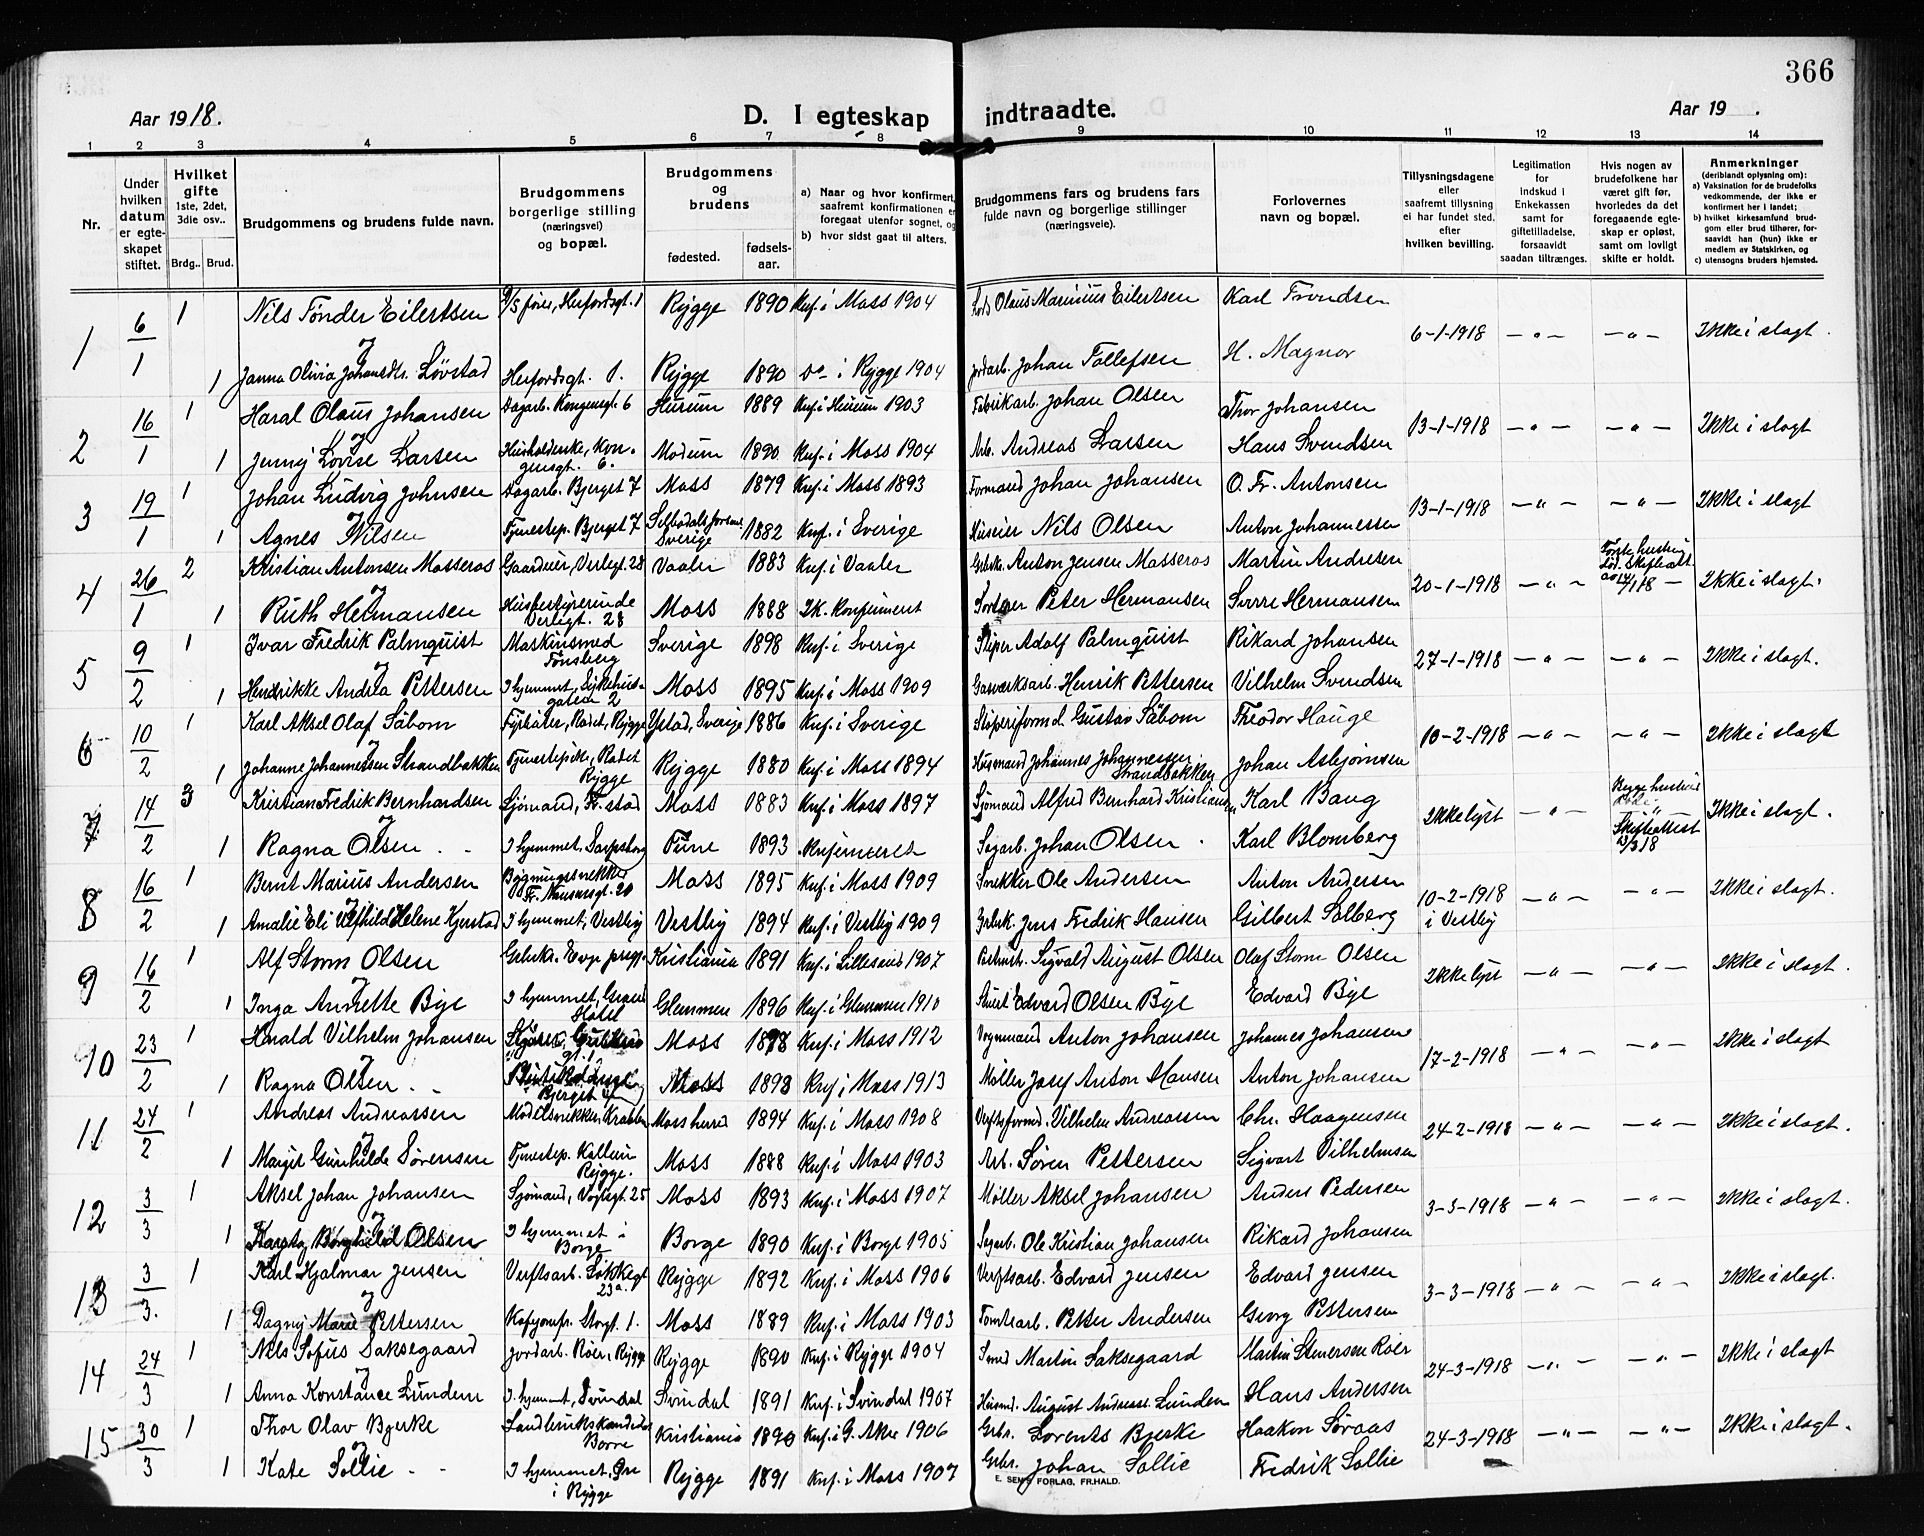 366
Aar 1918.
D. I egteskap indtraadte.
Aar 19 .
1 2 3 4 5 6 7 8 9 10 11 12 13 14
Nr.
Under hvilken datum er egteskapet stiftet.
Hvilket gifte 1ste, 2det, 3die osv..
Brdg.. Brud.
Brudgommens og brudens fulde navn.
Brudgommens borgerlige stilling (næringsvei) og bopæl.
Brudgommens og brudens
fødested.
fødsels-aar.
a) Naar og hvor konfirmert, saafremt konfirmationen er foregaat utenfor sognet, og
b) hvor sidst gaat til alters.
Brudgommens fars og brudens fars fulde navn og borgerlige stillinger (næringsveie).
Forlovernes navn og bopæl.
Tillysningsdagene eller saafremt tillysning ei har fundet sted. efter hvilken bevilling.
Legitimation for indskud i Enkekassen samt for giftetilladelse, forsaavidt saadan tiltrænges.
Hvis nogen av brudefolkene har været gift før, hvorledes da det foregaaende egteskap er opløst, samt om lovligt skifte er holdt.
Anmerkninger (deriblandt oplysning om):
a) Vaksination for de brudefolks vedkommende, der ikke er konfirmert her i landet;
b) hvilket kirkesamfund brudgom eller brud tilhører, forsaavidt han (hun) ikke er medlem av Statskirken, og
c) utensogns bruders hjemsted.
1 6/1 1 Nils Tønder Eilertsen Herfordsgt. 1 Rygge 1890 Knf. i Moss 1904 Olaus Marinius Eilertsen Karl Trondsen 6-1-1918 — " — — " — Ikke i slegt.
og
1 Janna Olivia Johansdtr. Løvstad Herfordsgt. 1. Rygge 1890 Do i Rygge 1904 Jordarb. Johan Tollefsen H. Magnor
2 16/1 1 Haral Olaus Johansen Dagarb. Kongensgt. 6 Hurum 1889 Knf. i Hurum 1903 Fabrikarb. Johan Olsen Thor Johansen 13-1-1918 — " — — " — Ikke i slegt
og
1 Jenny Lovise Larsen Husholderske, Kongensgt. 6. Modum 1890 Knf. i Moss 1904 Arb. Andreas Larsen Hans Svendsen
3 19/1 1 Johan Ludvig Johnsen Dagarb. Bjerget 7 Moss 1879 Knf. i Moss 1893 Formand Johan Johansen O. Fr. Antonsen 13-1-1918 — " — — " — Ikke i slegt
og
1 Agnes Nilsen Tjenestep. Bjerget 7 Sverige 1882 Knf. i Sverige Huseier Nils Olsen Anton Johannessen
4 26/1 2 Kristian Antonsen Mosseros Gaardeier, Verlegt. 28 Vaaler 1883 Knf. i Vaaler Gbrk. Anton Jensen Mosseros Martin Andresen 20-1-1918 — " — Første hustru død. Skifteatt. av 14/1 18 — Ikke i slegt.
og
1 Ruth Hermansen Husbestyrerinde Verlegt. 28 Moss 1888 Ik. konfirmert Peter Hermansen Sverre Hermansen
5 9/2 1 Ivar Fredrik Palmquist Maskinsmed Tønsberg Sverige 1898 Knf. i Sverige Støper Adolf Palmquist Rikard Johansen 27-1-1918 — " — — " — Ikke i slegt.
og
1 Hendrikke Andrea Pettersen I hjemmet, Sykehusgaten 2 Moss 1895 Knf. i Moss 1909 Gasverksarb. Henrik Pettersen Vilhelm Svendsen
6 10/2 1 Karl Aksel Olaf Säbom Fyrbøter, Radet, Rygge Ystad, Sverige 1886 Knf. i Sverige Støperiformd. Gustav Säbom Theodor Hauge 10-2-1918 — " — — " — Ikke i slegt
og
1 Johanne Johannessen Strandbakken Tjenestepike, Radet Rygge Rygge 1880 Knf. i Moss 1894 Husmand Johannes Johannessen Strandbakken Johan Asbjørnsen
7 14/2 3 Kristian Fredrik Bernhardsen Sjømand, Fr.stad Moss 1883 Knf. i Moss 1897 Sjømand Alfred Bernhard Kristiansen Karl Bang Ikke lyst — " — Begge hustruer døde. Skifteattest 13/2 18 Ikke i slegt.
og
1 Ragna Olsen I hjemmet, Sarpsborg Tune 1893 Sagarb. Johan Olsen Karl Blomberg
8 16/2 1 Bernt Marius Andersen Bygningssnekker Fr. Nansensgt. 20 Moss 1895 Knf. i Moss 1909 Snekker Ole Andersen Anton Andersen 10-2-1918 i Vestby — " — — " — Ikke i slegt.
og
1 Amalie Eli Helene Kjerstad I hjemmet, Vestby Vestby 1894 Knf. i Vestby 1909 Gbrk. Jens Fredrik Hansen Gilbert Solberg
9 16/2 1 Alf Storm Olsen Kristiania 1891 Knf. i Lillesand 1907 Sigvald August Olsen Olaf Storm Olsen Ikke lyst — " — — " — Ikke i slegt.
og
1 Inga Annette Bye I hjemmet, Grand Hotel Glemmen 1896 Knf. i Glemmen 1910 Edvard Olsen Bye Edvard Bye
10 23/2 1 Harald Vilhelm Johansen Moss 1898 Knf. i Moss 1912 Vognmand Anton Johansen Johannes Johansen 17-2-1918 — " — — " — Ikke i slegt
og
1 Ragna Olsen Moss 1898 Knf. i Moss 1913 Møller Josef Anton Hansen Anton Johansen
11 24/2 1 Andreas Andreassen Modelsnekker, Krabben Moss herred 1894 Knf. i Moss 1908 Verftsformd. Vilhelm Andreassen Chr. Haagensen 24-2-1918 — " — — " — Ikke i slegt.
og
1 Margit Gunhilde Sørensen Tjenestep. Kallum Rygge. Moss 1888 Knf. i Moss 1903 Arb. Søren Pettersen Sigvart Vilhelmsen
12 3/3 1 Aksel Johan Johansen Sjømand, Vogtsgt. 25 Moss 1893 Knf. i Moss 1907 Møller Aksel Johansen Anders Pedersen 3-3-1918 — " — — " — Ikke i slegt.
og
1 Borghild Olsen I hjemmet i Borge Borge 1890 Knf. i Borge 1905 Sagarb. Ole Kristian Johansen Rikard Johansen
13 3/3. 1 Karl Hjalmar Jensen Verftsarb. Løkkegt 23a. Rygge 1892 Knf. i Moss 1906 Verftsarb. Edvard Jensen Edvard Jensen 3-3-1918 — " — — " — Ikke i slegt.
og
1 Dagny Marie Pettersen Kafejomfr. Storgt. 1. Moss 1889 Knf. i Moss 1903 Tomtearb. Petter Andersen Georg Pettersen
14 24/3 1 Nils Sofus Saksegaard Jordarb. Roer, Rygge Rygge 1890 Knf. i Rygge 1904 Smed Martin Saksegaard Martin Stenersen Roer 24-3-1918 — " — — " — Ikke i slegt
og
1 Anna Konstance Lunden I hjemmet, Svindal Svindal 1891 Knf. i Svindal 1907 Husmd. August Andreas. Lunden Hans Andersen
15 30/3 1 Thor Olav Bjerke Landbrukskandidat Borre Kristiania 1890 Knf. i G. Aker 1906 Grbr. Lorents Bjerke Haakon Søraas 24-3-1918 — " — — " — Ikke i slegt.
og
1 Kate Sollie I hjemmet, Øre i Rygge Rygge 1891 Knf. i Moss 1907 Grbr. Johan Sollie Fredrik Sollie
E. SEM'S FORLAG, FR.HALD.